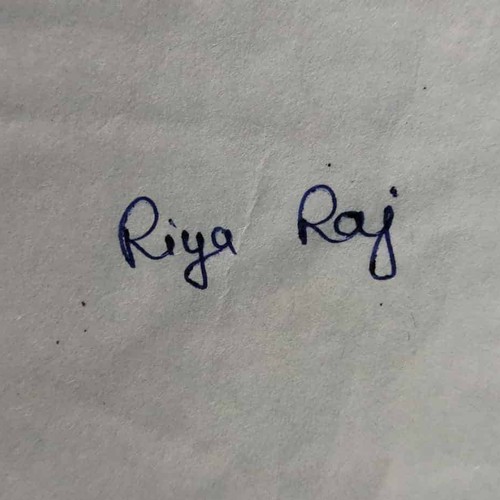 Riya Raj